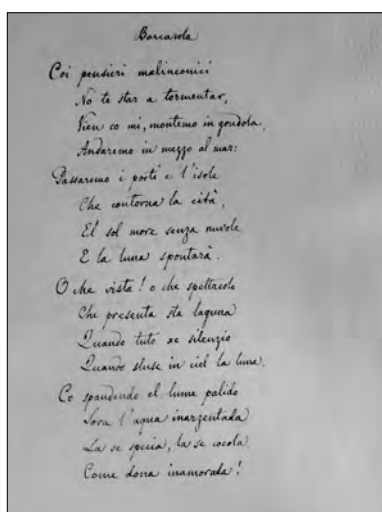 Barcarola
Coi pensieri malinconici
No te star a tormentar,
Vien co mi, montemo in gondola,
Andaremo in mezzo al mar:
Passaremo i porti e l'isole
Che contorna la cità,
El sol more senza nuvole
E la luna spontarà.
O che vista! o che spettacolo
Che presenta sta laguna
Quando tuto xe silenzio
Quando sluse in ciel la luna.
Co spandendo el lume palido
Sora l'aqua inarzentada
La se specia, la se cocola,
Come dona inamorada!